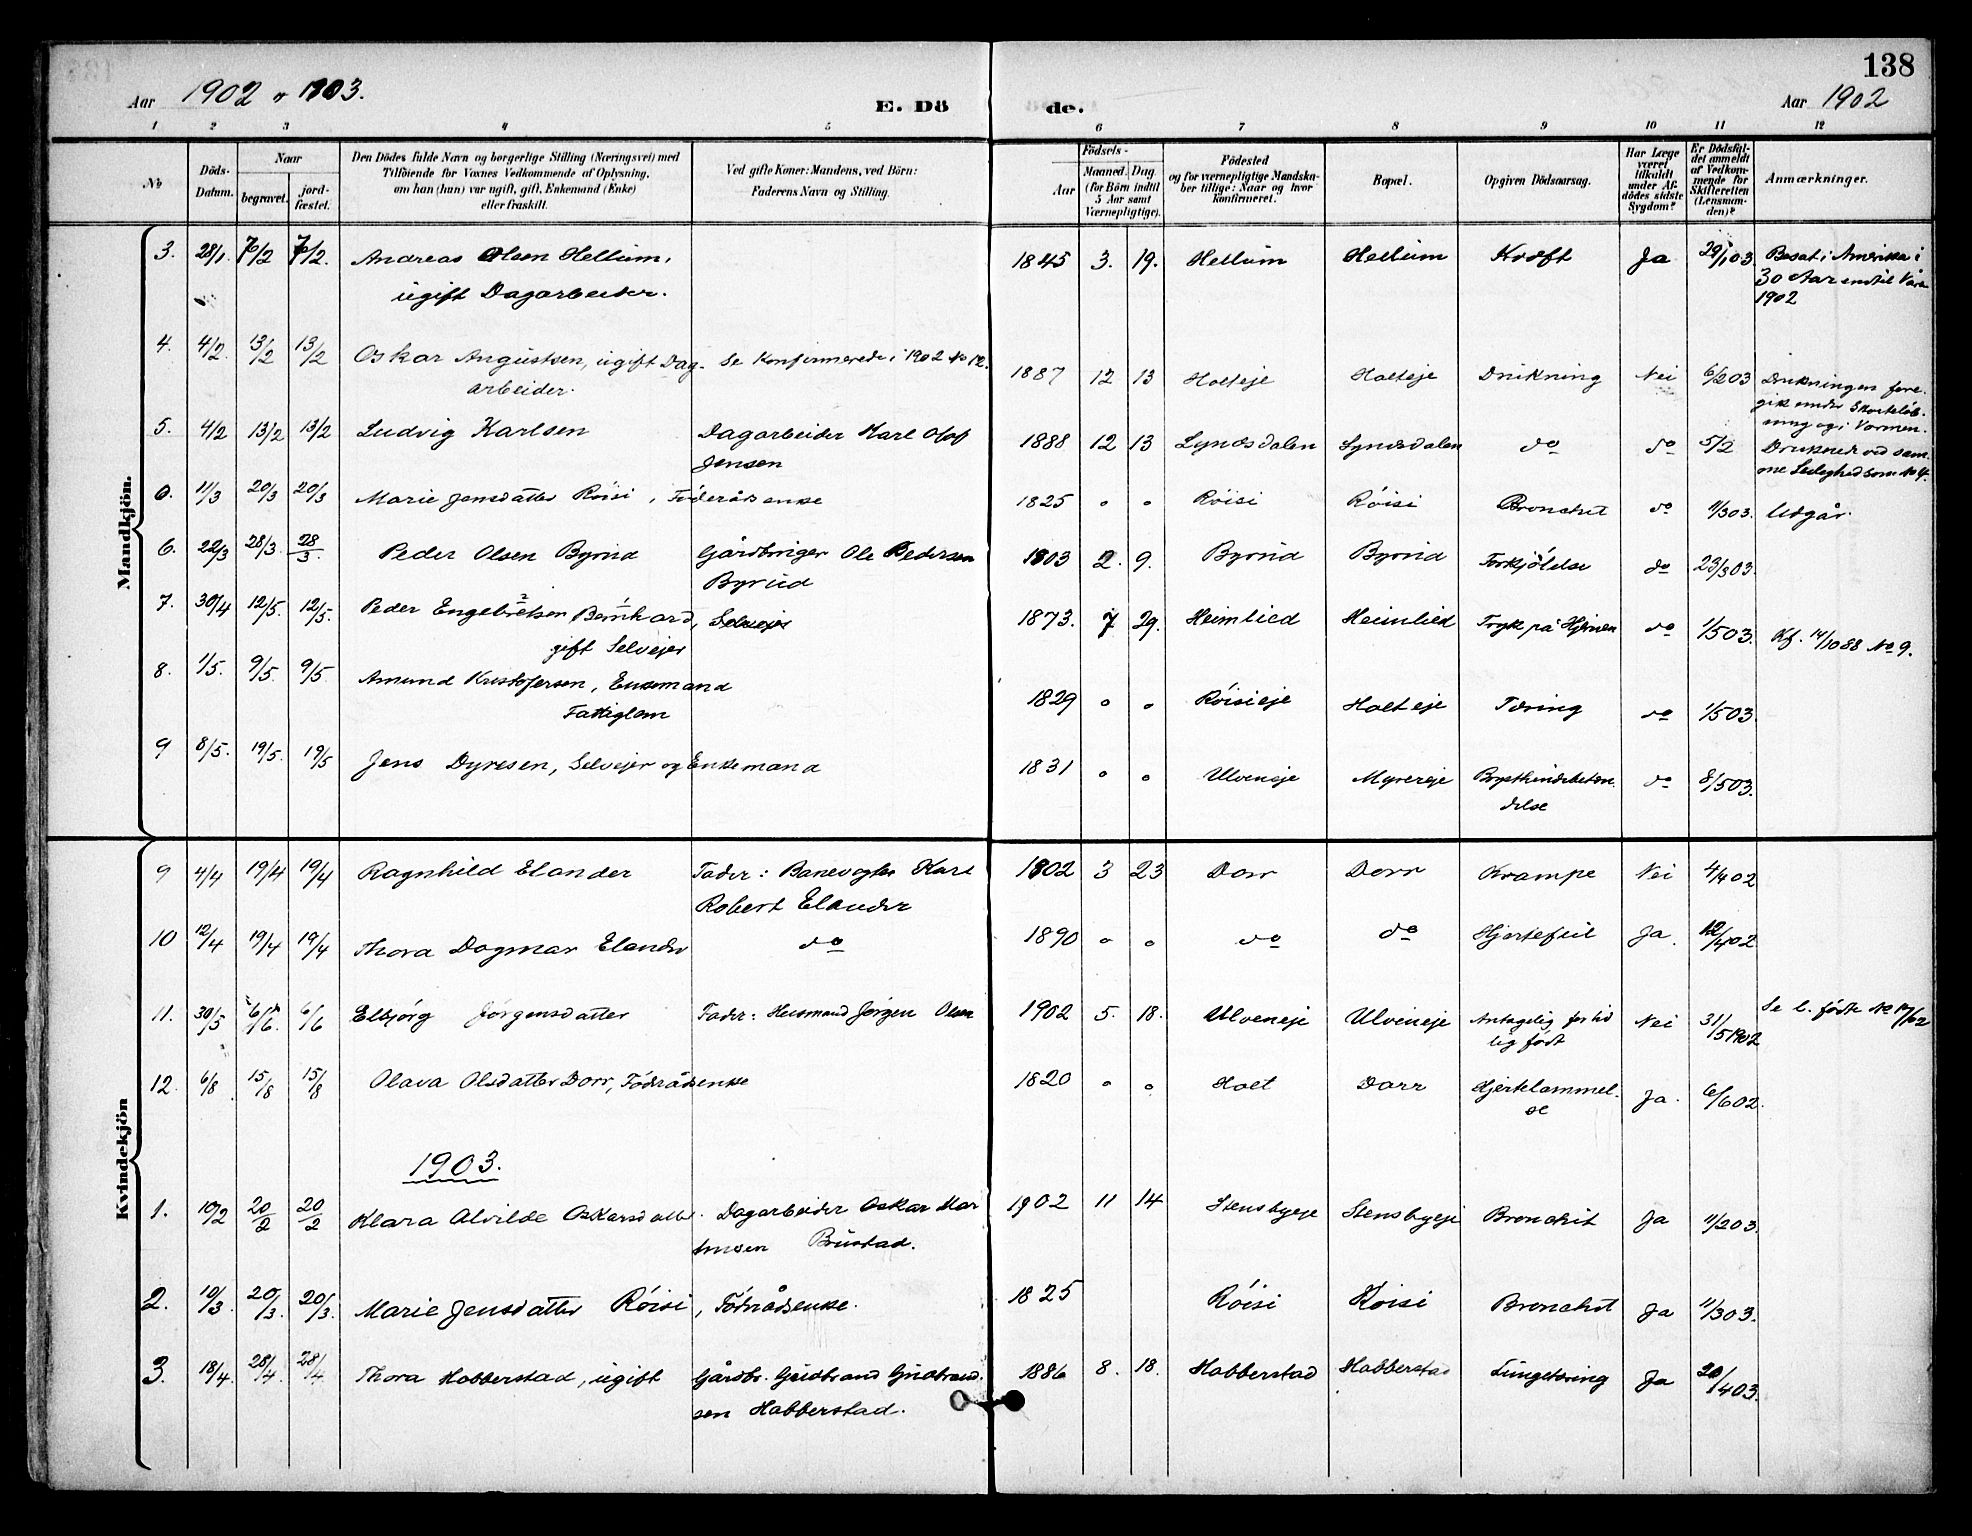 138
Aar 1902 og 1903.
E. Dö
de.
Aar 1902
1 2 3 4 5 6 7 8 9 10 11 12
No
Döds-Datum.
Naar
begravet.
jord-fæstet.
Den Dödes fulde Navn og borgerlige Stilling (Næringsvei) med
Tilföiende for Voxnes Vedkommende af Oplysning,
om han (hun) var ugift, gift, Enkemand (Enke)
eller fraskilt.
Ved gifte Koner: Mandens, ved Börn:
Faderens Navn og Stilling.
Födsels-
Aar
Maaned. Dag.
(for Börn indtil
5 Aar samt
Værnepligtige).
Födested
og for værnepligtige Mandska-
ber tillige: Naar og hvor
konfirmeret.
Bopæl.
Opgiven Dödsaarsag.
Har Læge
været
tilkaldt
under Af-
dödes sidste
Sygdom?
Er Dödsfal-
det anmeldt
af Vedkom-
mende for
Skifteretten
(Lensman-
den)?
Anmærkninger.
Mandkjön.
3. 28/1. 7/2 7/2. Andreas Olsen Hellum, 1845 3. 19. Hellum Hellum Kræft Ja 29/1 03. Bosat i Amerika i
ugift Dagarbeider. 30 Aar indtil Vaar
1902
4. 4/2. 13/2 13/2 Oskar Augustsen, ugift Dag- Se Konfirmerede i 1902 No 12. 1887 12 13 Holteje Holteje Drukning Nei 6/2 03 Drukningen fore-
arbeider. gik under Skøiteløb-
ning og i Vormen.
5. 4/2 13/2 13/2 Ludvig Karlsen Dagarbeider Karl Olaf 1888 12 13 Lyndsdalen Lyndsdalen do do 5/2 Druknede ved sam-
Jensen me Leilighed som No 4.
6. 11/3 20/3 20/3 Marie Jensdatter Röisi, Föderådsenke 1825 " " Röisi Röisi Bronchit do 11/3 03. Udgår.
6. 22/3 28/3. 28/3. Peder Olsen Byrud Gårdbruger Ole Pedersen 1903 2. 9. Byrud Byrud Forkjölelse do 23/3 03.
Byrud
7. 30/4 12/5. 12/5. Peder Engebretsen Bernhard, Selvejer 1873. 7 29. Heimlied Heimlied Tryk på Hjernen do 1/5 03. Kf. 14/10 88 No 9.
gift Selvejer
8. 1/5. 9/5. 9/5. Amund Kristofersen, Enkemand 1829 " " Röisieje Holteje Tæring do 1/5 03.
Fattiglem
9 8/5. 19/5. 19/5 Jens Dyresen, Selvejer og Enkemand 1831 " " Ulveneje Myrereje Brysthindebetæn- do 8/5 03.
delse
Kvindekjön
9 4/4 19/4 19/4 Ragnhild Elander Fader: Banevogter Karl 1902 3 23 Dorr Dorr Krampe Nei 4/4 02
Robert Elander
10 12/4 19/4 19/4 Thora Dagmar Elander do 1890 " " do do Hjertefeil Ja. 12/4 02
11. 30/5 6/6. 6/6 Elbjörg Jörgensdatter Fader: Husmand Jörgen Olsen 1902 5. 18. Ulveneje Ulveneje Antagelig fortid Nei 31/5 1902 Se l. fødte No 17/02
lig født
12. 6/8 15/8 15/8 Olava Olsdatter Dorr, Föderådsenke 1820 " " Holt Dorr Hjertelammel- Ja. 6/6 02.
se
1903.
1. 10/2 20/2 20/2 Klara Alvilde Oskarsdatter. Dagarbeider Oskar Mar 1902 11 14 Stensbyeje Stensbyeje Bronchit Ja 11/2 03.
tinsen Brustad.
2. 10/3. 20/3. 20/3. Marie Jensdatter Röisi, Föderådsenke. 1825 Röisi Röisi Bronchit Ja 11/3 03.
3. 18/4. 28/4. 28/4 Thora Habberstad, ugift Gårdbr. Gudbrand Gudbrand- 1886 8. 18. Habberstad Habberstad Lungetæring Ja 20/4 03.
sen Habberstad.